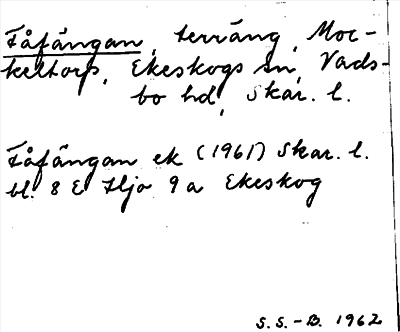 Fåfängan, terräng, Moc-
keltorp, Ekeskogs sn, Vads-
bo hd, Skar. l.
Fåfängan ek (1961) Skar. l.
bl. 8 E Hjo 9 a Ekeskog
S. S. - B. 1962